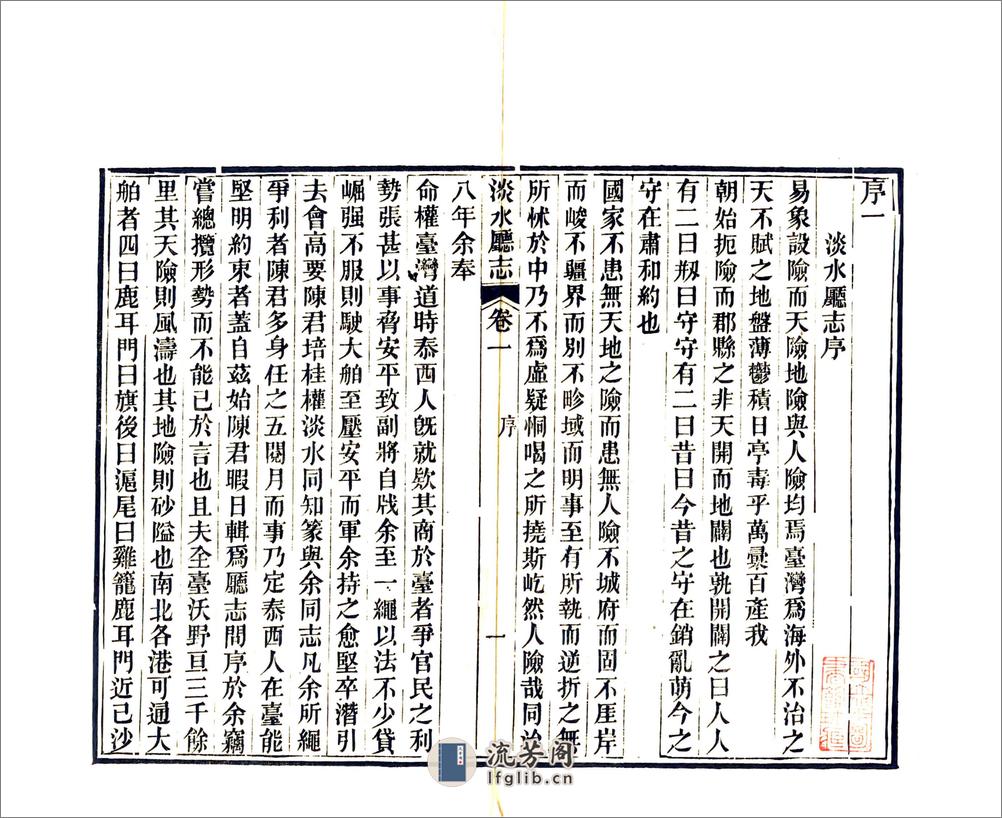 序一
淡水廳志序
易象設險而天險地險與人險均焉臺灣爲海外不治之
天不賦之地盤薄鬱積日亭毒乎萬彙百產我
朝始扼險而郡縣之非天開而地闢也孰開闢之曰人人
有二曰剏曰守守有二曰昔曰今昔之守在銷亂萌今之
守在肅和約也
國家不患無天地之險而患無人險不城府而固不厓岸
而峻不疆界而別不畛域而明事至有所執而逆折之無
所怵於中乃不爲虛疑恫喝之所撓斯屹然人險哉同治
淡水廳志 卷一 序 一
八年余奉
命權臺灣道時泰西人旣就欵其商於臺者爭官民之利
勢張甚以事脅安平致副將自戕余至一繩以法不少貸
崛强不服則駛大舶至壓安平而軍余持之愈堅卒潛引
去會高要陳君培桂權淡水同知篆與余同志凡余所繩
爭利者陳君多身任之五閱月而事乃定泰西人在臺能
堅明約束者蓋自茲始陳君暇日輯爲廳志問序於余竊
嘗總攬形勢而不能已於言也且夫全臺沃野亘三千餘
里其天險則風濤也其地險則砂隘也南北各港可通大
舶者四曰鹿耳門曰旗後曰滬尾曰雞籠鹿耳門近已沙
流芳阁
lfglib.cn